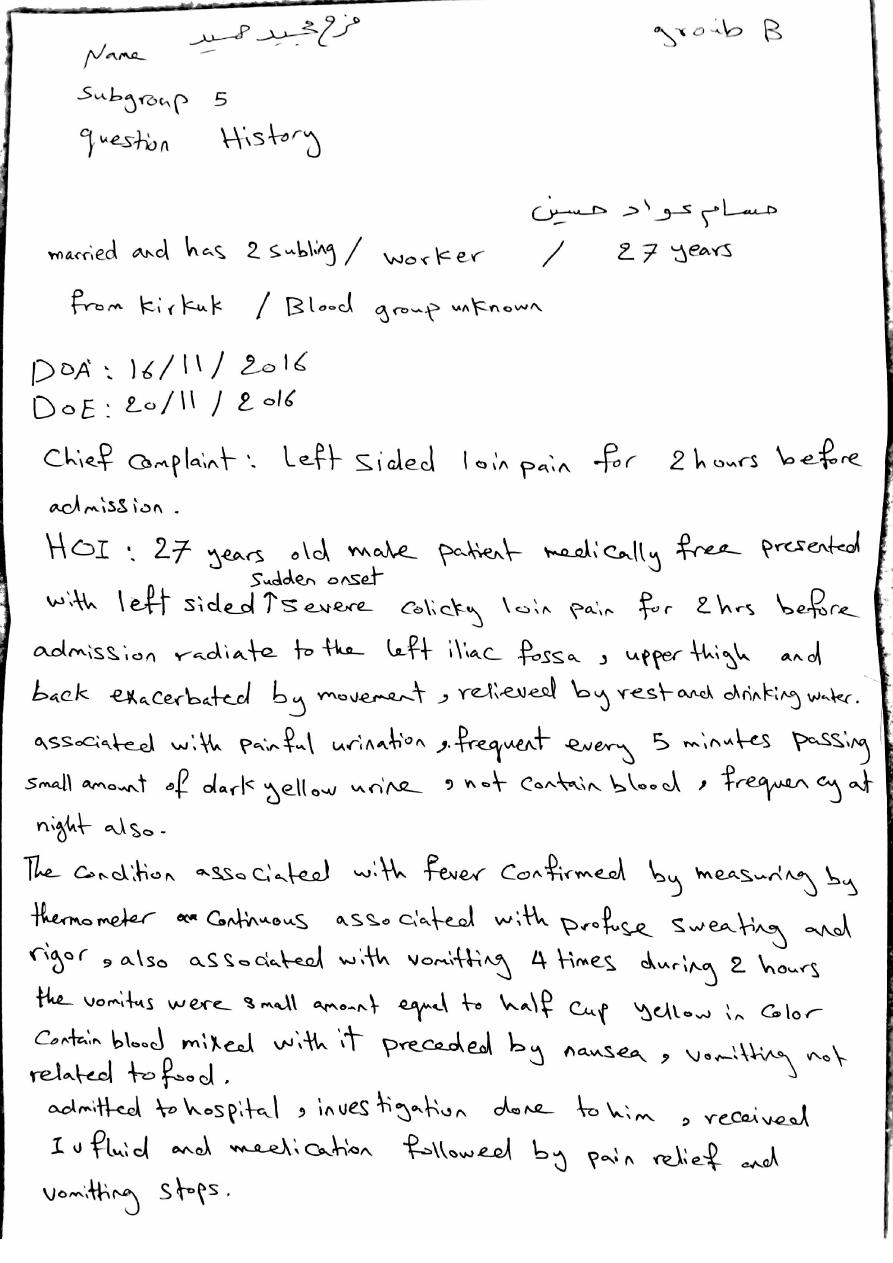 Name فرح مجيد حميد groib B
Subgroup 5
question History
حسام عواد حسين
married and has 2 subling / worker / 27 years
from kirkuk / Blood group unknown
DOA : 16/11/2016
DOE : 20/11/2016
Chief Complaint : Left sided loin pain for 2 hours before
admission .
HOI : 27 years old male patient medically free presented
sudden onset
with left sided ↑ severe colicky loin pain for 2hrs before
admission radiate to the left iliac fossa , upper thigh and
back exacerbated by movement , relieved by rest and drinking water.
associated with painful urination , frequent every 5 minutes passing
small amount of dark yellow urine , not contain blood , frequency at
night also .
The condition associated with fever confirmed by measuring by
thermometer continuous associated with profuse sweating and
rigor , also associated with vomitting 4 times during 2 hours
the vomitus were small amount equal to half cup yellow in color
contain blood mixed with it preceded by nausea , vomitting not
related to food .
admitted to hospital , investigation done to him , received
IV fluid and medication followed by pain relief and
vomitting stops .